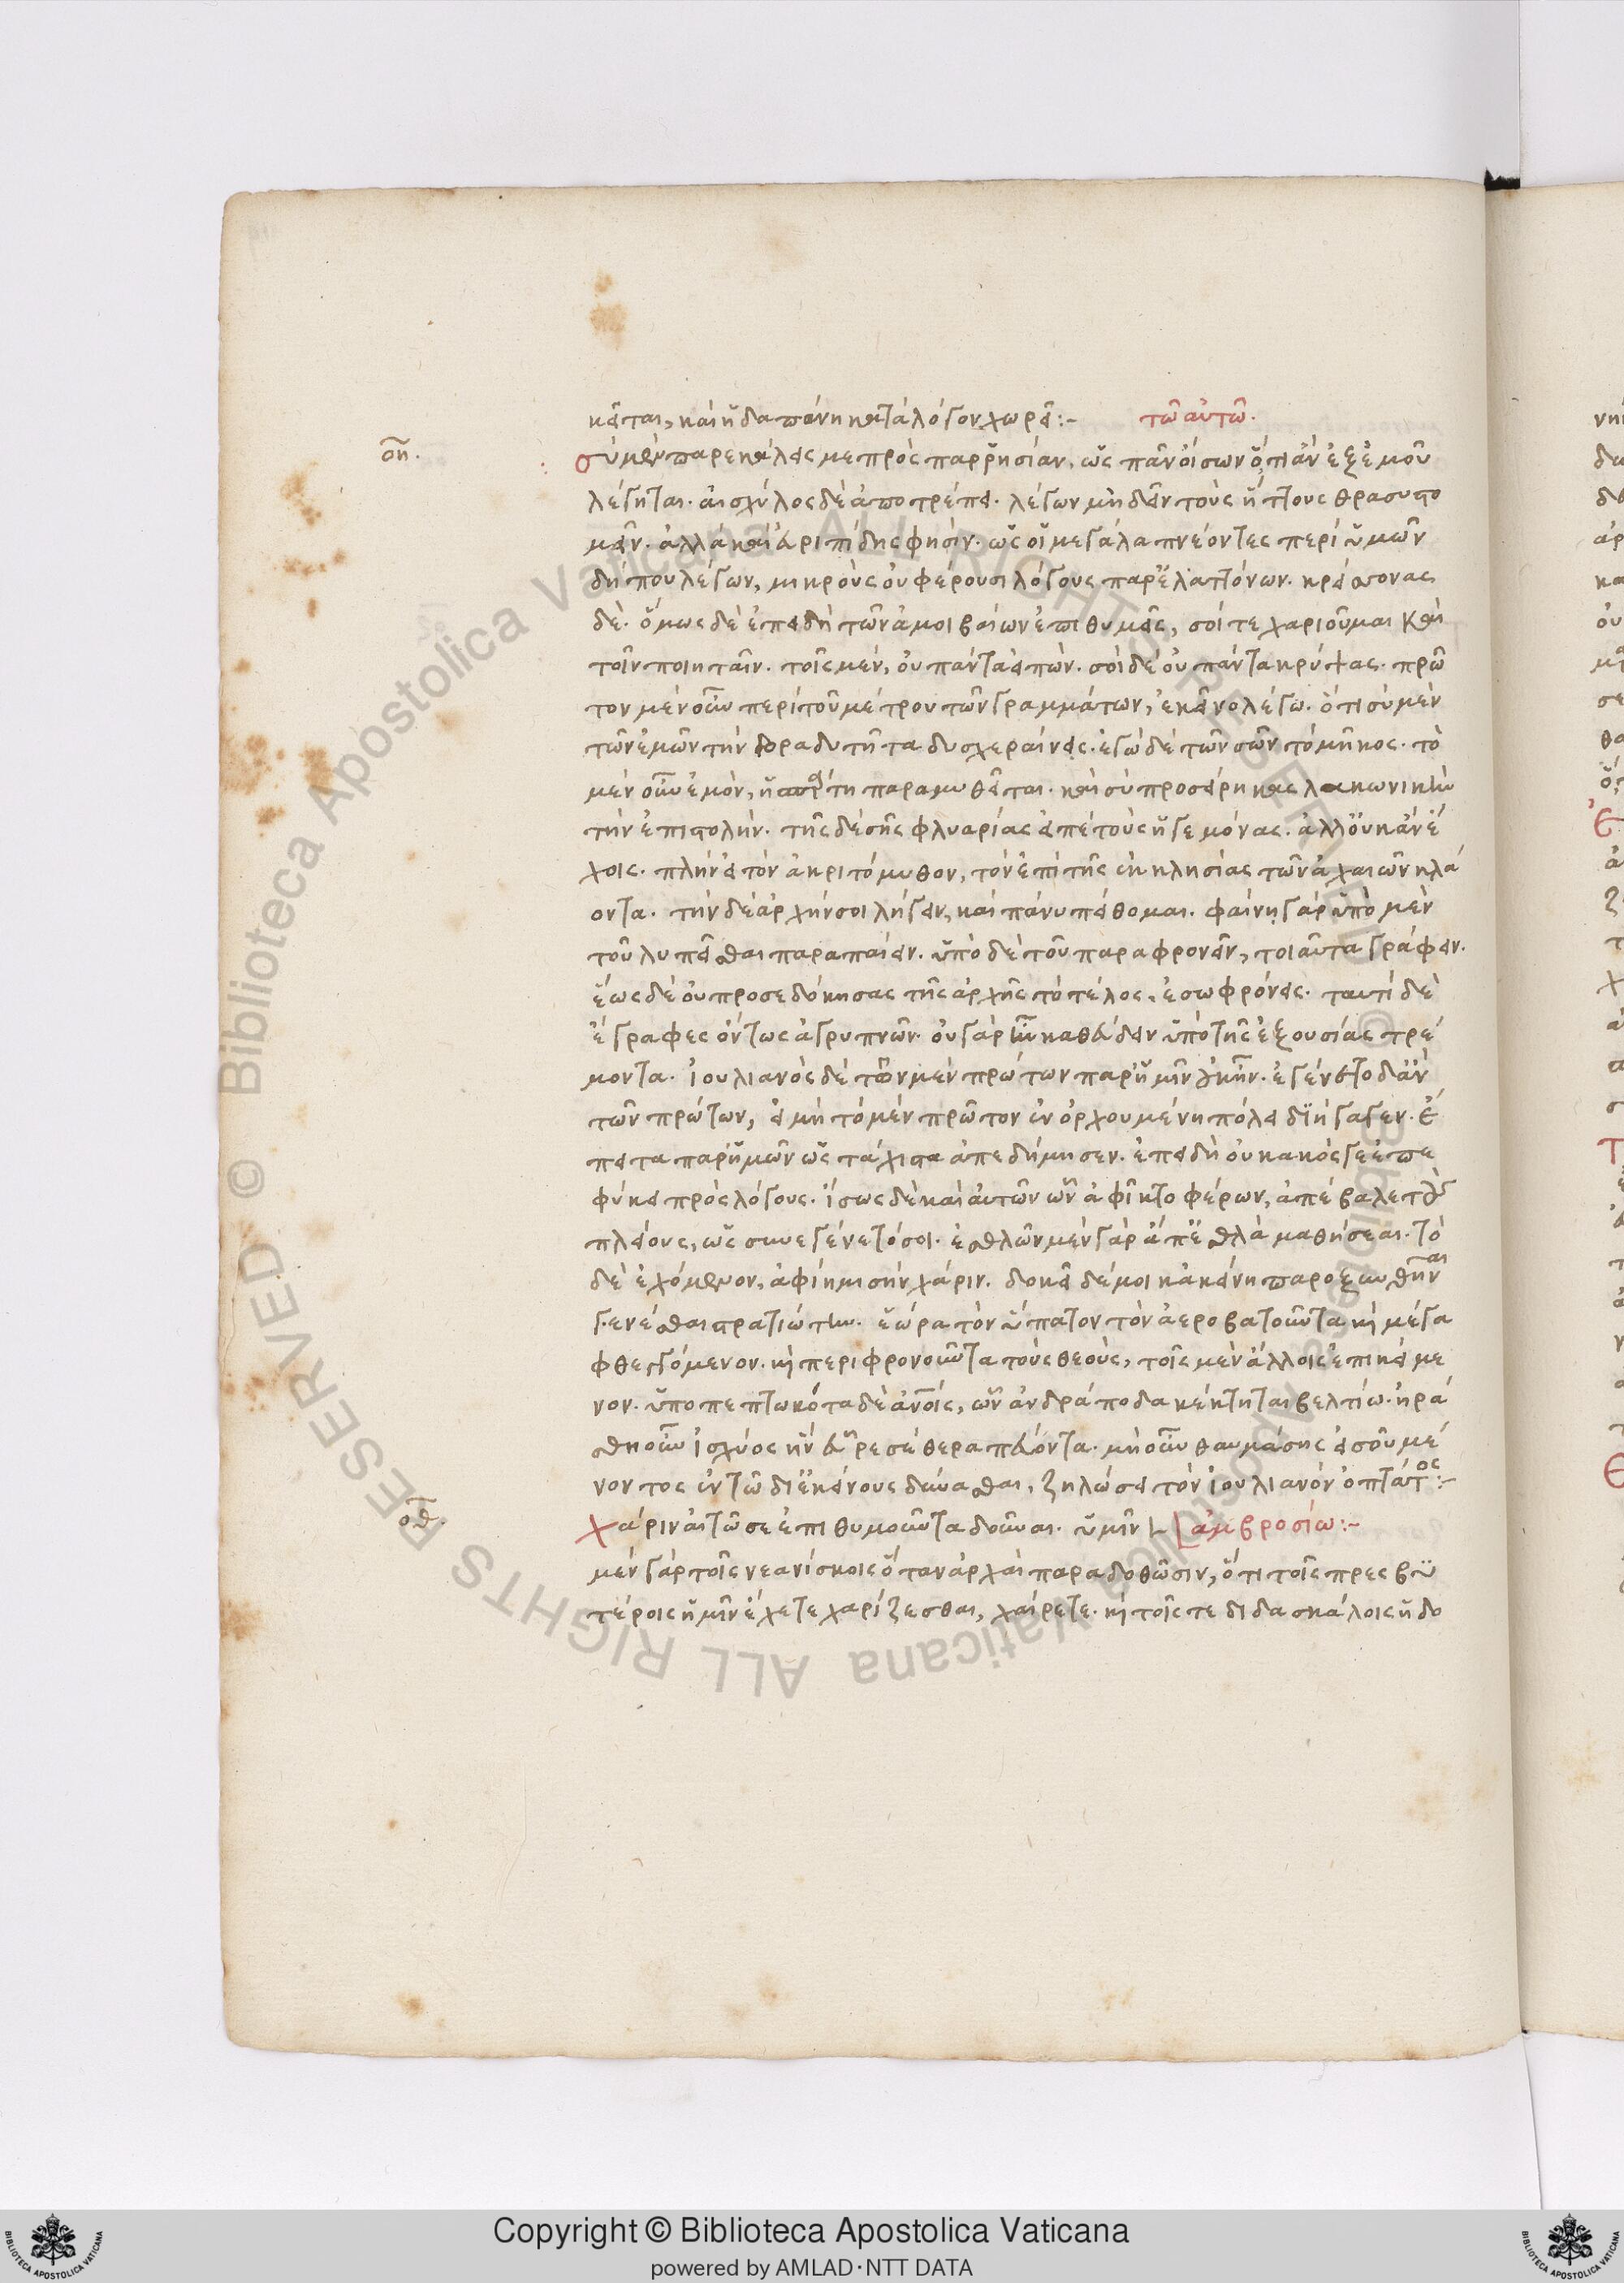 κεῖται, καὶ ἡ δαπάνη κατὰ λόγον χωρεῖ :- τῶ αὐτῶ.
οη. σὺ μὲν παρεκάλεις με πρὸς παρρησίαν, ὡς πᾶν οἴσων ὅτι ἂν ἐξ ἐμοῦ
λέγηται. αἰσχύλος δὲ ἀποτρέπει. λέγων μὴ δεῖν τοὺς ἥττους θρασυστο
μεῖν. ἀλλὰ καὶ εὐριπίδης φησίν. ὡς οἱ μεγάλα πνέοντες περὶ ὑμῶν
δήπου λέγων, πικροὺς οὐ φέρουσι λόγους παρ' ἐλαττόνων. κρείσσονας
δέ. ὅμως δὲ ἐπειδὴ τῶν ἀμοιβαίων ἐπιθυμεῖς, σοί τε χαριοῦμαι καὶ
τοῖν ποιηταῖν. τοῖς μὲν, οὐ πάντα εἰπών. σοὶ δὲ οὐ πάντα κρύψας. πρῶ
τον μὲν οὖν περὶ τοῦ μέτρου τῶν γραμμάτων, ἐκεῖνο λέγω. ὅτι σὺ μὲν
τῶν ἐμῶν τὴν βραδυτῆτα δυσχεραίνεις. ἐγὼ δὲ τῶν σῶν τὸ μῆκος. τὸ
μὲν οὖν ἐμὸν, ἡ σπάρτη παραμυθεῖται. καὶ σὺ προσείρηκας λακωνικὴν
τὴν ἐπιστολήν. τῆς δὲ σῆς φλυαρίας εἰπὲ τοὺς ἡγεμόνας. ἀλλ' οὐκ ἂν ἔ
χοις. πλὴν εἰ τὸν ἀκριτόμυθον, τὸν ἐπὶ τῆς ἐκκλησίας τῶν ἀχαιῶν κλά
οντα. τὴν δὲ ἀρχήν σοι λήγειν, καὶ πάνυ πείθομαι. φαίνῃ γὰρ ὑπὸ μὲν
τοῦ λυπεῖσθαι παραπαίειν. ὑπὸ δὲ τοῦ παραφρονεῖν, τοιαῦτα γράφειν.
ἕως δὲ οὐ προσεδόκησας τῆς ἀρχῆς τὸ τέλος, ἐσωφρόνεις. ταυτὶ δὲ
ἔγραφες ὄντως ἀγρυπνῶν. οὐ γὰρ ἦν καθεύδειν ὑπὸ τῆς ἐξουσίας τρέ
μοντα. ἰουλιανὸς δὲ τῶν μὲν πρώτων παρ' ἡμῖν οὐκ ἦν. ἐγένετο δ' ἂν
τῶν πρώτων, εἰ μὴ τὸ μὲν πρῶτον ἐν ὀρχουμένη πόλει διήγαγεν. ἔ
πειτα παρ' ἡμῶν ὡς τάχιστα ἀπεδήμησεν. ἐπειδὴ οὐ κακός γε ἐπε
φύκει πρὸς λόγους. ἴσως δὲ καὶ αὐτῶν ὧν ἀφῖκτο φέρων, ἀπέβαλε τοὺς
πλείους, ὡς συνεγένετό σοι. ἐσθλῶν μὲν γὰρ ἄπ' ἐσθλὰ μαθήσεαι. τὸ
δὲ ἐχόμενον, ἀφίημι σὴν χάριν. δοκεῖ δέ μοι κἀκείνη παροξυνθῆναι
γενέσθαι στρατιώτην. ἑώρα τὸν ὕπατον τὸν ἀεροβατοῦντα καὶ μέγα
φθεγγόμενον. καὶ περιφρονοῦντα τοὺς θεοὺς, τοῖς μὲν ἄλλοις ἐπικείμε
νον. ὑποπεπτωκότα δὲ ἀνοις, ὧν ἀνδράποδα κέκτηται βελτίω. ἠρά
σθη οὖν ἰσχύος ἣν εὗρε σὲ θεραπεύοντα. μὴ οὖν θαυμάσῃς εἰ σοῦ μέ
νοντος ἐν τῶ δι' ἐκείνους δύνασθαι, ζηλώσει τὸν ἰουλιανὸν ὀπτάτος :-
οθ. χάριν αἰτῶ σε ἐπιθυμοῦντα δοῦναι. ὑμῖν ἀμβροσίω :-
μὲν γὰρ τοῖς νεανίσκοις ὅταν ἀρχαὶ παραδοθῶσιν, ὅτι τοῖς πρεσβυ
τέροις ἡμῖν ἔχετε χαρίζεσθαι, χαίρετε. καὶ τοῖς τε διδασκάλοις ἡδο